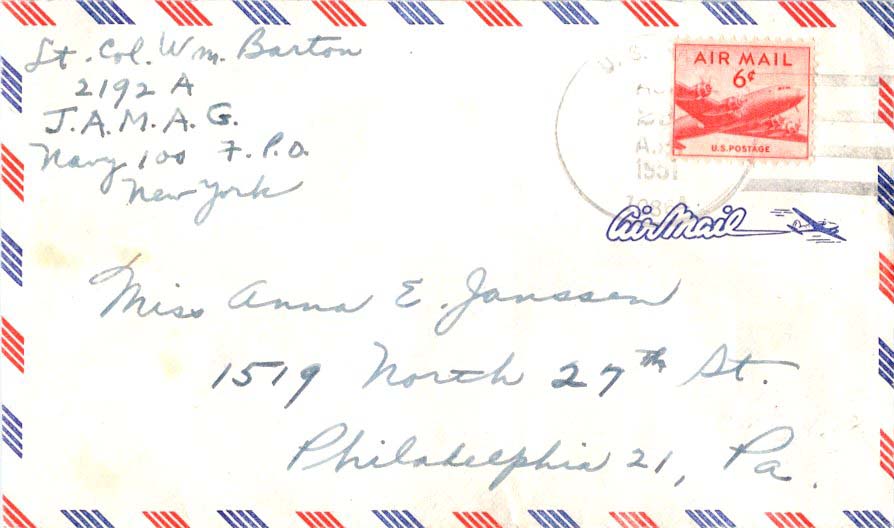 Lt. Col. Wm. Barton
2192 A
J.A.M.A.G.
Navy 100 F.P.O.
New York
U. S.
AIR MAIL
6¢
U.S. POSTAGE
1951
Air Mail
Miss Anna E. Janssen
1519 North 27th St.
Philadelphia 21, Pa.